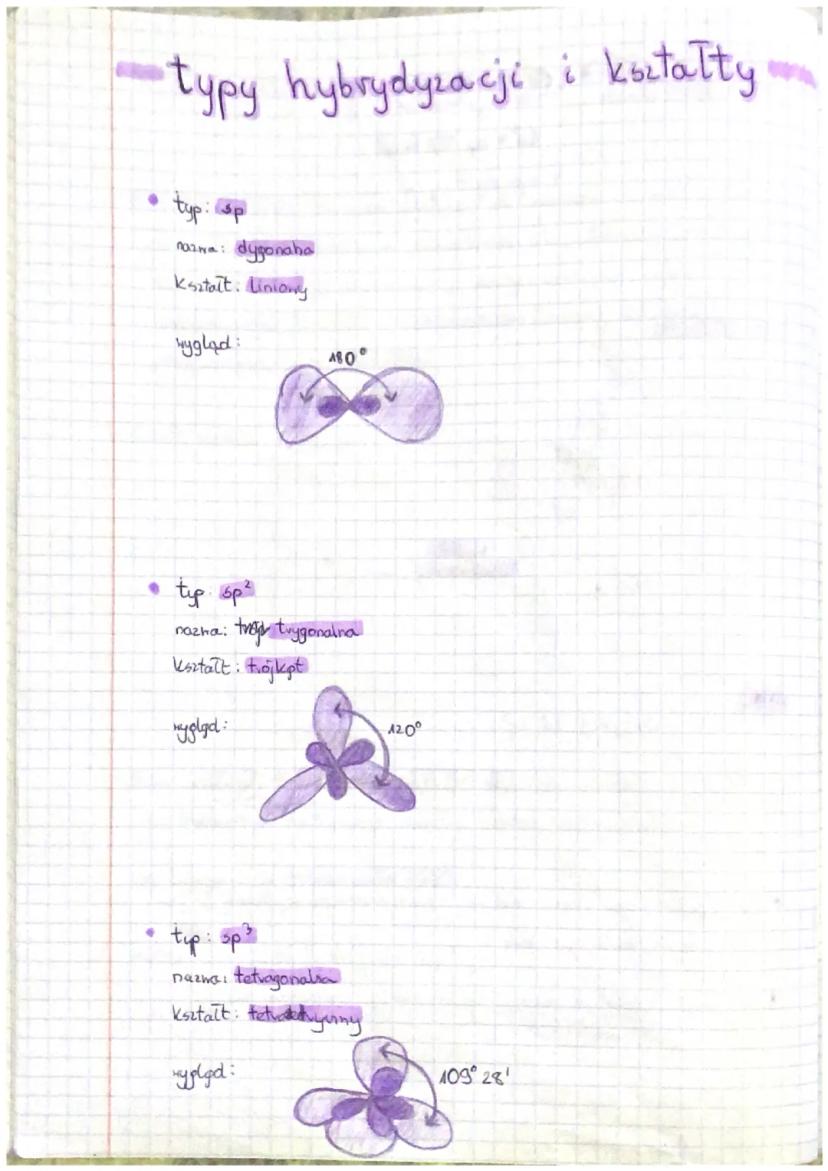 typy hybrydyzacji i kształty
typ: sp
nazwa: dygonalna
kształt: liniowy
wygląd:
180°
typ: sp²
nazwa: trygonalna
kształt: trójkąt
wygląd:
120°
typ: sp³
nazwa: tetragonalna
kształt: tetraedryczny
wygląd:
109° 28'